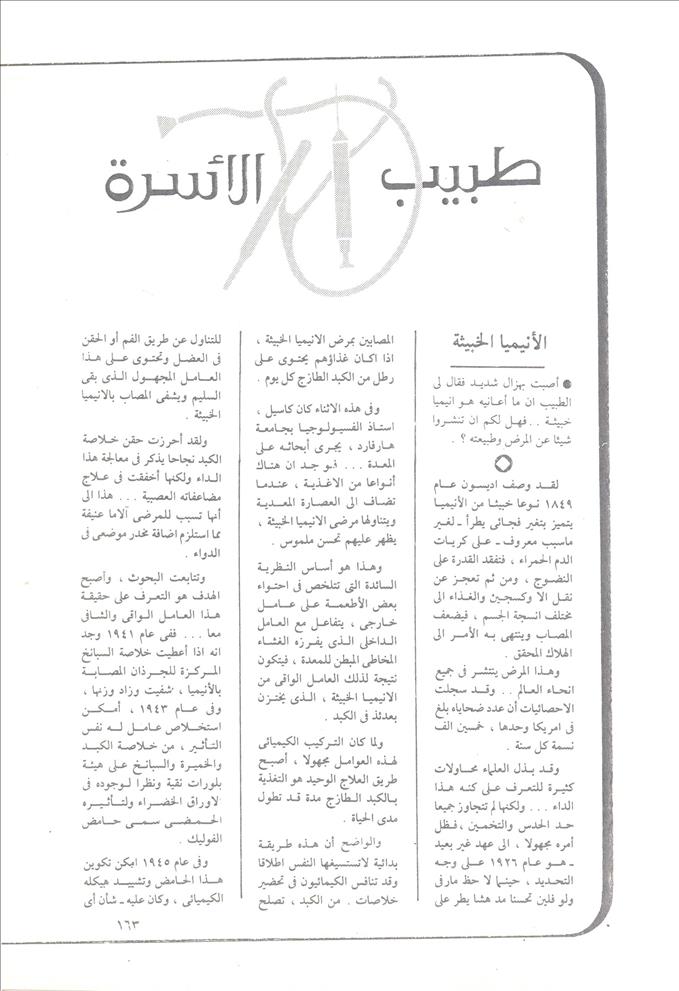 طبيب الأسرة
الأنيميا الخبيثة
● أصبت بهزال شديد فقال لى
الطبيب ان ما أعانيه هو انيميا
خبيثة . . فهل لكم ان تنشروا
شيئا عن المرض وطبيعته ؟ .
لقد وصف اديسون عام
١٨٤٩ نوعا خبيثا من الأنيميا
يتميز بتغير فجائى يطرأ ـ لغير
ماسبب معروف ـ على كريات
الدم الحمراء ، فتفقد القدرة على
النضوج ، ومن ثم تعجز عن
نقل الا وكسجين والغذاء الى
مختلف انسجة الجسم ، فيضعف
المصاب وينتهى به الأمر الى
الهلاك المحقق .
وهذا المرض ينتشر فى جميع
انحاء العالم . . وقد سجلت
الاحصائيات أن عدد ضحاياه بلغ
فى امريكا وحدها ، خمسين الف
نسمة كل سنة .
وقد بذل العلماء محاولات
كثيرة للتعرف على كنه هذا
الداء . . . ولكنها لم تتجاوز جميعا
حد الحدس والتخمين ، فظل
أمره مجهولا ، الى عهد غير بعيد
ـ هو عام ١٩٢٦ على وجه
التحديد ، حينما لا حظ مارفى
ولو فلين تحسنا مد هشا يطر على
المصابين بمرض الانيميا الخبيثة ،
اذا اكان غذاؤهم يحتوى على
رطل من الكبد الطازج كل يوم .
وفى هذه الاثناء كان كاسيل ،
استاذ الفسيولوجيا بجامعة
هارفارد ، يجرى أبحاثه على
المعدة . . . فوجد ان هناك
أنواعا من الاغذية ، عندما
تضاف الى العصارة المعدية
ويتناولها مرضى الانيميا الخبيثة ،
يظهر عليهم تحسن ملموس .
وهذا هو أساس النظرية
السائدة التى تتلخص فى احتواء
بعض الأطعمة على عامل
خارجى ، يتفاعل مع العامل
الداخلى الذى يفرزه الغشاء
المخاطى المبطن للمعدة ، فيتكون
نتيجة لذلك العامل الواقى من
الانيميا الخبيثة ، الذى يختزن
بعدئذ فى الكبد .
ولما كان التركيب الكيميائى
لهذه العوامل مجهولا ، أصبح
طريق العلاج الوحيد هو التغذية
بالكبد الطازج مدة قد تطول
مدى الحياة .
والواضح أن هذه طريقة
بدائية لاتستسيغها النفس اطلاقا
وقد تنافس الكيمائيون فى تحضير
خلاصات . من الكبد ، تصلح
للتناول عن طريق الفم أو الحقن
فى العضل وتحتوى على هذا
العامل المجهول الذى يقى
السليم ويشفى المصاب بالانيميا
الخبيثة .
ولقد أحرزت حقن خلاصة
الكبد نجاحا يذكر فى معالجة هذا
الداء ولكنها أخفقت فى علاج
مضاعفاته العصبية . . . هذا الى
أنها تسبب للمرضى آلاما عنيفة
مما استلزم اضافة مخدر موضعى فى
الدواء .
وتتابعت البحوث ، وأصبح
الهدف هو التعرف على حقيقة
هذا العامل الواقى والشافى
معا . . . ففى عام ١٩٤١ وجد
انه اذا أعطيت خلاصة السبانخ
المركزة للجرذان المصابة
بالأنيميا ، شفيت وزاد وزنها ،
وفى عام ١٩٤٣ ، أمكن
استخلاص عامل له نفس
التأثير ، من خلاصة الكبد
والخميرة والسبانخ على هيئة
بلورات نقية ونظرا لوجوده فى
الاوراق الخضراء ولتأثيره
الحمضى سمى حامض
الفوليك .
وفى عام ١٩٤٥ امكن تكوين
هذا الحامض وتشييد هيكله
الكيميائى ، وكان عليه ـ شأن أى
١٦٣